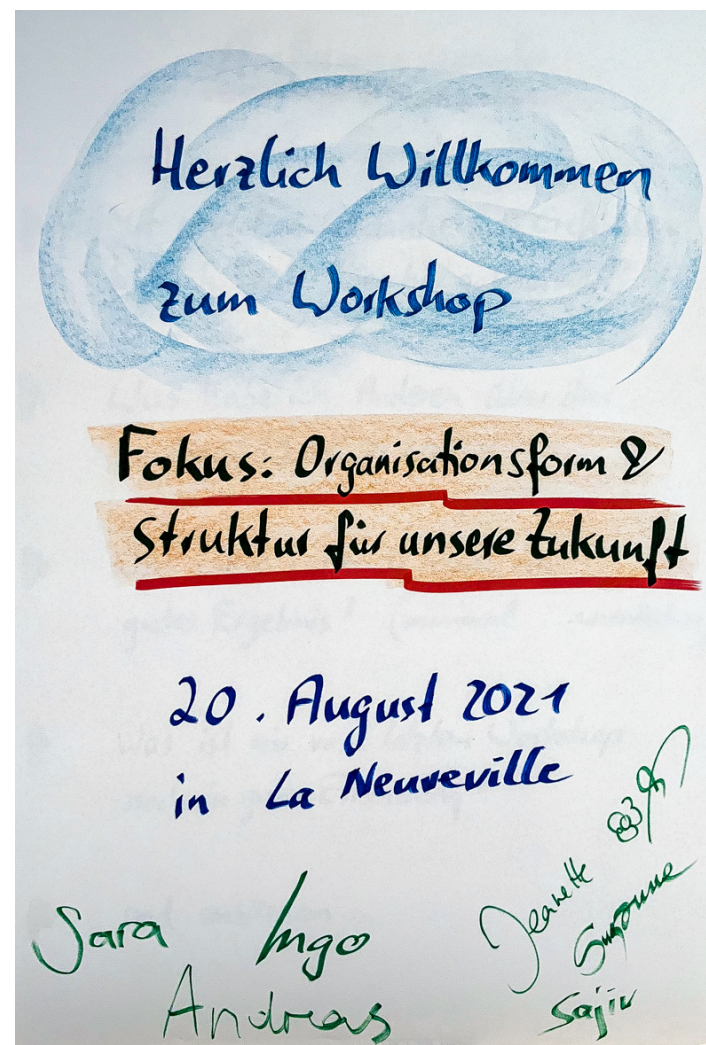 Herzlich Willkommen
zum Workshop
Fokus: Organisationsform &
Struktur für unsere Zukunft
20. August 2021
in La Neuveville
Sara
Ingo
Andreas
Jeanette
Suzanne
Sajiv